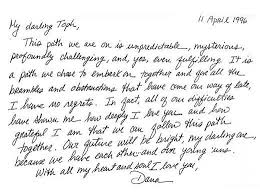 11 April 1996
My darling Toph,
This path we are on is unpredictable, mysterious,
profoundly challenging, and, yes, even fulfilling. It is
a path we chose to embark on together and for all the
brambles and obstructions that have come our way of late,
I have no regrets. In fact, all of our difficulties
have shown me how deeply I love you and how
grateful I am that we are follow this path
together. Our future will be bright, my darling one,
because we have each other and our young uns.
With all my heart and soul I love you,
Dana